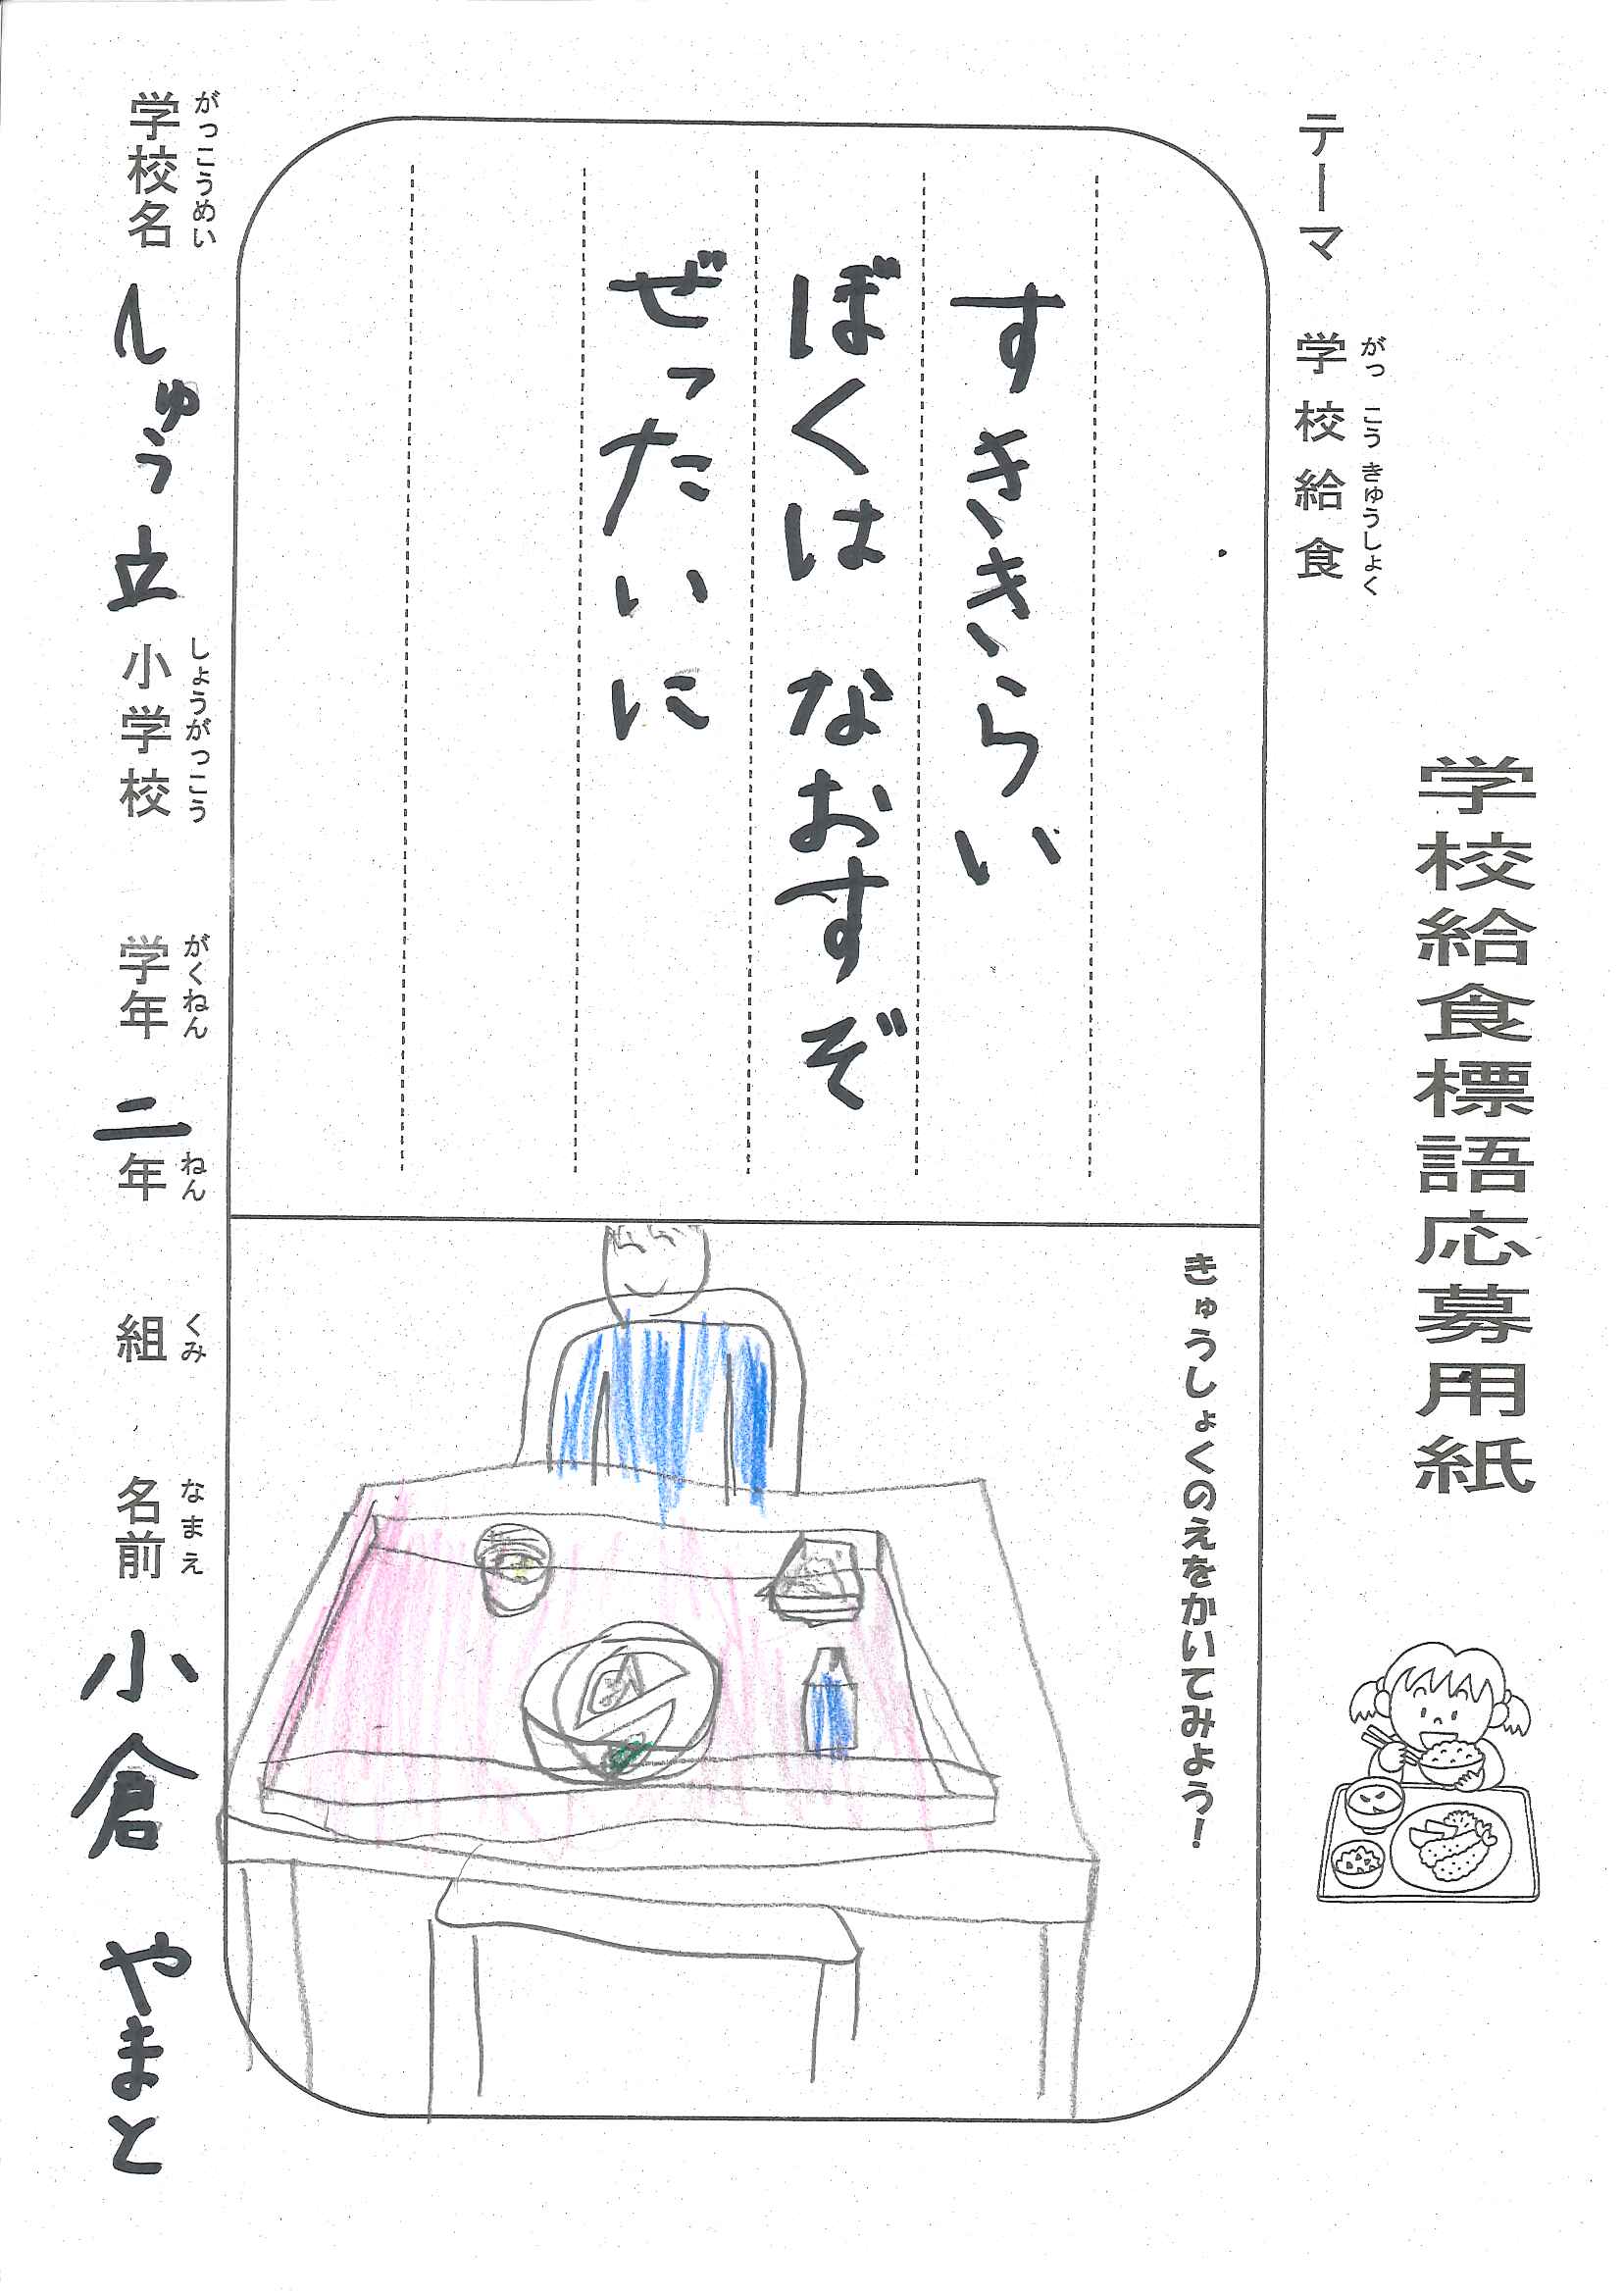 学校給食標語応募用紙
テーマ 学校給食
がっこうきゅうしょく
すききらい
ぼくは なおすぞ
ぜったいに
きゅうしょくのえをかいてみよう!
がっこうめい
しょうがっこう
がくねん
ねん
くみ
なまえ
学校名 しゅう立 小学校 学年 二年 組 名前 小倉 やまと